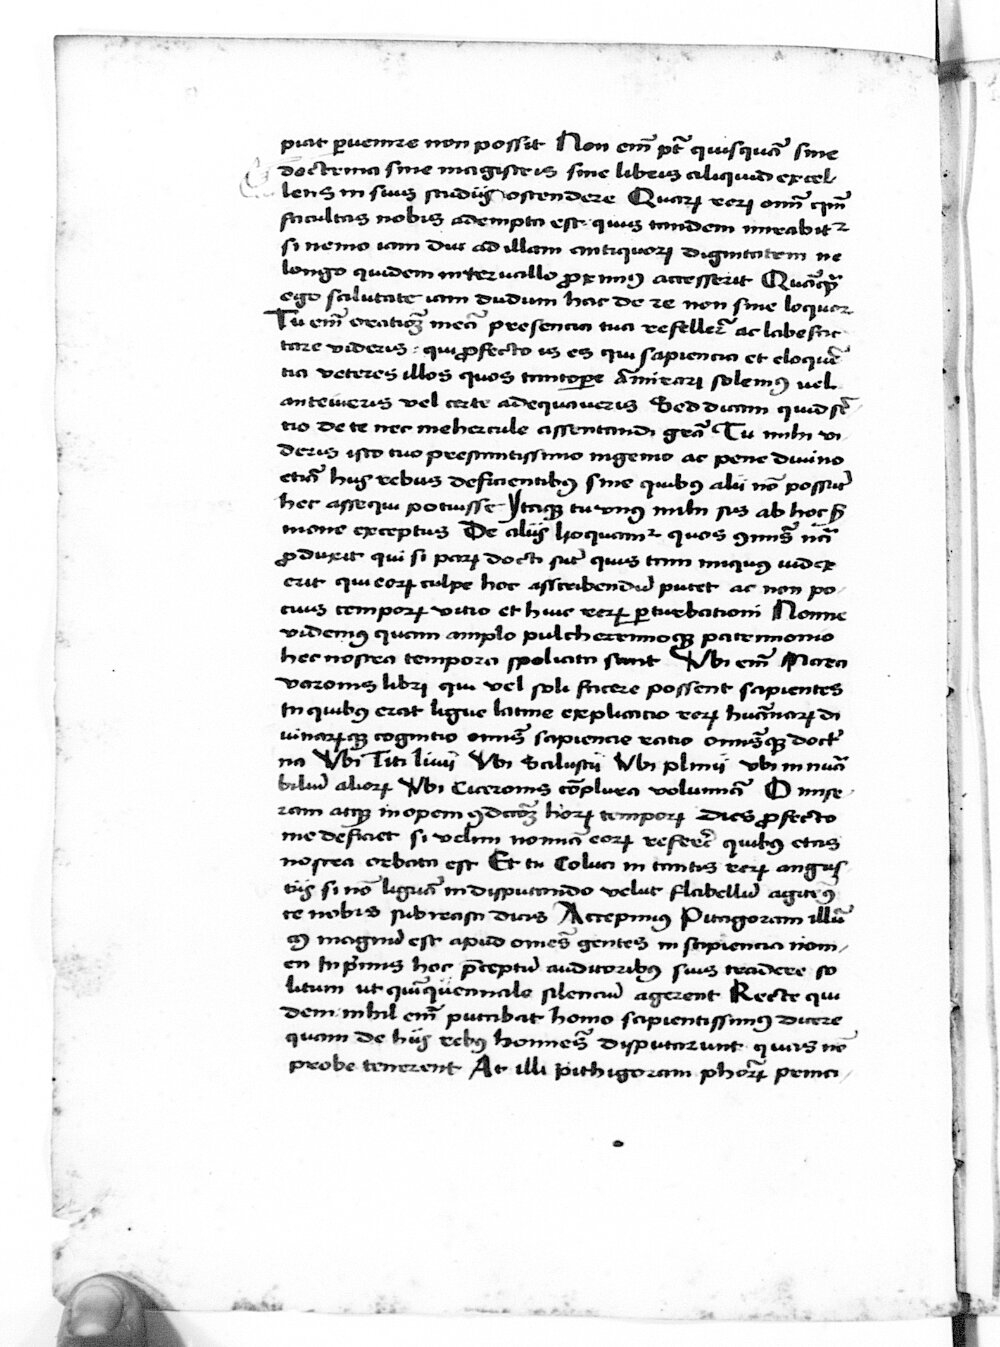 piat ꝑvenire non possit Non em̄ pt̄ quisquā sine
doctrina sine magistris sine libris aliquid excel-
lens in suis studiis ostendere Quaꝝ reꝝ omī cum̄
facultas nobis adempta est quis tandem mirabitʳ
si nemo iam diu ad illam antiquoꝝ dignitatem ne
longo quidem intervallo ꝓximꝰ accesserit Quāqꝫ
ego salutate iam dudum hac de re non sine loquor
Tu em̄ oratioꝫ meā presencia tua refellere᷒ ac labefac-
tare videris qui ꝓfecto is es qui sapiencia et eloquē
tia veteres illos quos tantopere āmirari solemꝰ vel
anteiveris vel certe adequaveris Sed dicam quid sē
tio de te nec mehercule assentandi grā Tu mihi vi-
deris isto tuo prestantissimo ingenio ac pene divino
etiā hijs rebus deficientibꝰ sine quibꝰ alii nō possūt
hec assequi potuisse Itaqꝫ tu vnꝰ mihi sis ab hoc ẜ
mone exceptus De aliis loquamʳ quos ꝯmuīs nā
ꝓduxit qui si paꝝ docti sūt quis tam iniquꝰ iudex
erit qui eoꝝ culpe hoc asscribendū putet ac non po-
cius tempoꝝ vitio et huic reꝝ ꝑturbationi Nonne
videmꝰ quam amplo pulcherrimoqꝫ patrimonio
hec nostra tempora spoliata sunt Vbi em̄ Marci
varonis libri qui vel soli facere possent sapientes
In quibꝰ erat ligue latine explicatio reꝝ hūanaꝝ di
vinaꝝqꝫ cognitio omīs sapiencie ratio omīsqꝫ doct
na Vbi Titi livii Vbi Salustii Vbi plinii vbi innūa
biliū alioꝝ Vbi Ciceronis cōplura volumīa O mise
ram atqꝫ inopem ꝯdicōꝫ hoꝝ tempoꝝ Dies ꝓfecto
me deficiet si velim nomīa eoꝝ referē quibꝰ etas
nostra orbata est Et tu Coluci in tantis reꝝ angus
tiis si nō liguā in disputando velut flabellū agitemꝰ
te nobis subirasci dicis Accepimꝰ Pitagoram illū
cꝰ magnū est apud omēs gentes in sapiencia nom-
en In p̄mis hoc p̄ceptū auditoribꝰ suis tradere so
litum ut quīquennale silenciū agerent Recte qui
dem nihil em̄ putabat homo sapientissimꝰ dicere
quam de hiis rebꝰ homīes disputarunt quas nō
probe tenerent At illi pithigoram phōrꝝ princi-